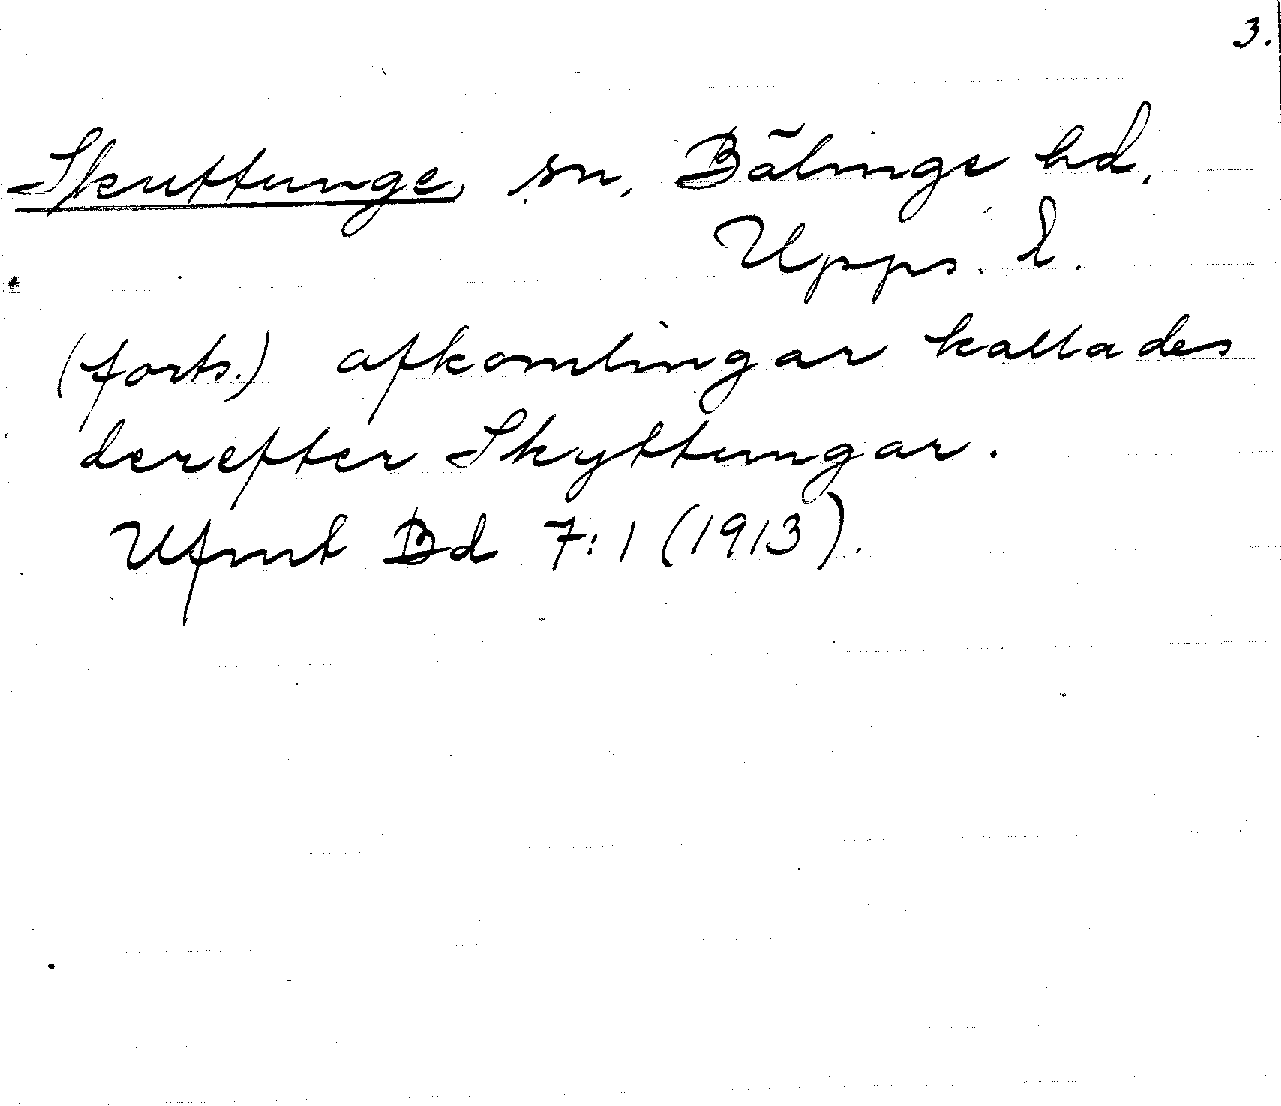 3.
Skuttunge, sn, Bälinge hd.
Upps. l.
(forts.) afkomlingar kallades
derefter Skyttungar.
Ufmt Bd 7:1 (1913).